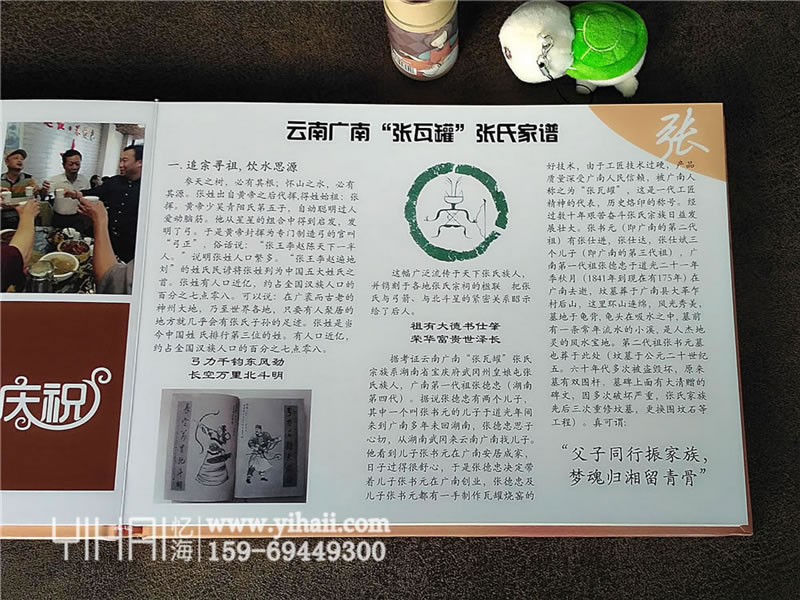 云南广南“张瓦罐”张氏家谱
张
一. 追宗寻祖, 饮水思源
参天之树, 必有其根; 怀山之水, 必有
其源。张姓出自黄帝之后代挥,得姓始祖: 张
挥。黄帝少昊青阳氏第五子, 自幼聪明过人
爱动脑筋。他从星星的组合中得到启发, 发
明了弓。于是黄帝封挥为专门制造弓的官叫
“弓正”, 俗话说: “张王李赵陈天下一半
人。”说明张姓人口繁多。“张王李赵遍地
刘”的姓氏民谚将张姓列为中国五大姓氏之
首。张姓有人口近亿, 约占全国汉族人口的
百分之七点零八。可以说: 在广袤而古老的
神州大地, 乃至世界各地, 只要有人聚居的
地方就几乎会有张氏子孙的足迹。张姓是当
今中国姓氏排行第三位的姓。有人口近亿,
约占全国汉族人口的百分之七点零八。
弓力千钧东风劲
长空万里北斗明
这幅广泛流传于天下张氏族人,
并镌刻于各地张氏宗祠的楹联 把张
氏与弓箭、与北斗星的紧密关系昭示
给了后人。
祖有大德书仕肇
荣华富贵世泽长
据考证云南广南“张瓦罐”张氏
宗族系湖南省宝庆府武冈州皇娘屯张
氏族人, 广南第一代祖张德忠（湖南
第四代）。据说张德忠有两个儿子,
其中一个叫张书元的儿子于道光年间
来到广南多年未回湖南, 张德忠思子
心切, 从湖南武冈来云南广南找儿子。
他看到儿子张书元在广南安居成家,
日子过得很舒心, 于是张德忠决定带
着儿子张书元在广南创业, 张德忠及
儿子张书元都有一手制作瓦罐烧窑的
好技术, 由于工匠技术过硬, 产品
质量深受广南人民信赖, 被广南人
称之为“张瓦罐”, 这是一代工匠
精神的代表、历史烙印的称号。经
过数十年艰苦奋斗张氏宗族日益发
展壮大。张书元（即广南的第二代
祖）有张仕进, 张仕达, 张仕斌三
个儿子（即广南的第三代祖）, 广
南第一代祖张德忠于道光二十一年
季秋月（1841年到现在有175年）在
广南去逝, 坟墓葬于广南县大莘乍
村后山, 这里环山连绵, 风光秀美,
墓地于龟背, 龟头在吸水之中, 墓前
有一条常年流水的小溪, 是人杰地
灵的风水宝地。第二代祖张书元墓
也葬于此处（坟墓于公元二十世纪
五。六十年代多次被盗毁坏, 原来
墓有双围杆, 墓碑上面有大清赠的
碑文, 因多次破坏严重, 张氏家族
先后三次重修坟墓, 更换围坟石等
工程）。真可谓:
“父子同行振家族,
梦魂归湘留青骨”
庆祝
YIHAI 忆海
www.yihaii.com
159-69449300